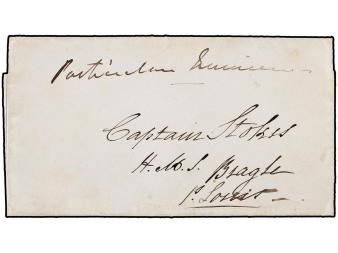 Particular Service
Captain Stokes
H.M.S. Beagle
Pt. Louis